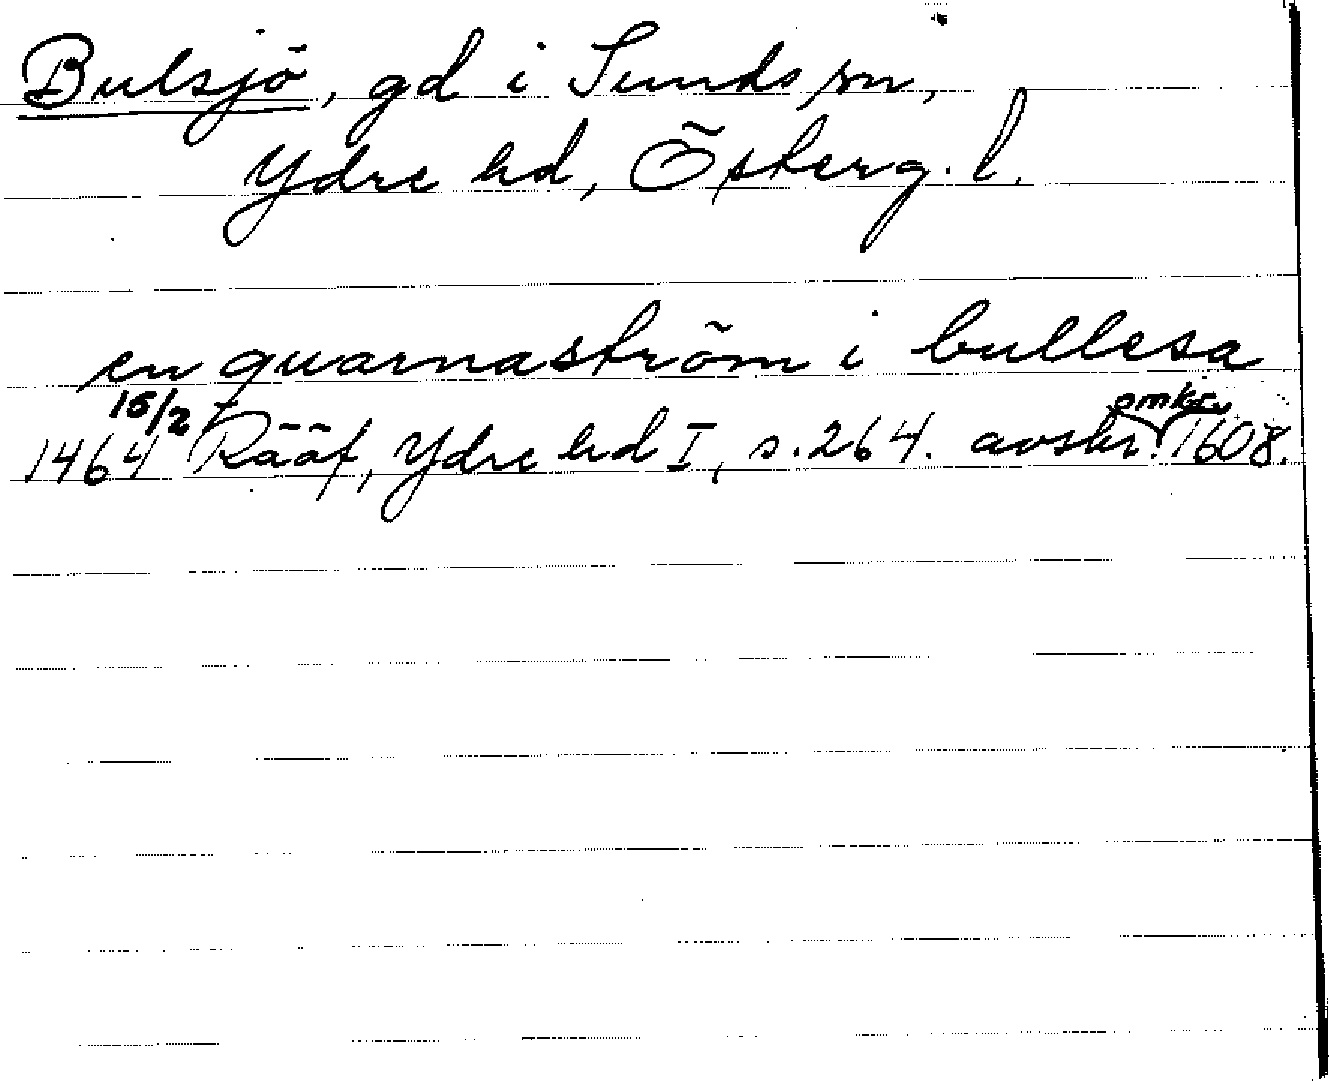 Bulsjö, gd i Sunds sn,
Ydre hd, Österg. l.
en quarnaström i bullesa
15/2 omkr.
1464 Rääf, Ydre hd I, s. 264. avskr. 1608.